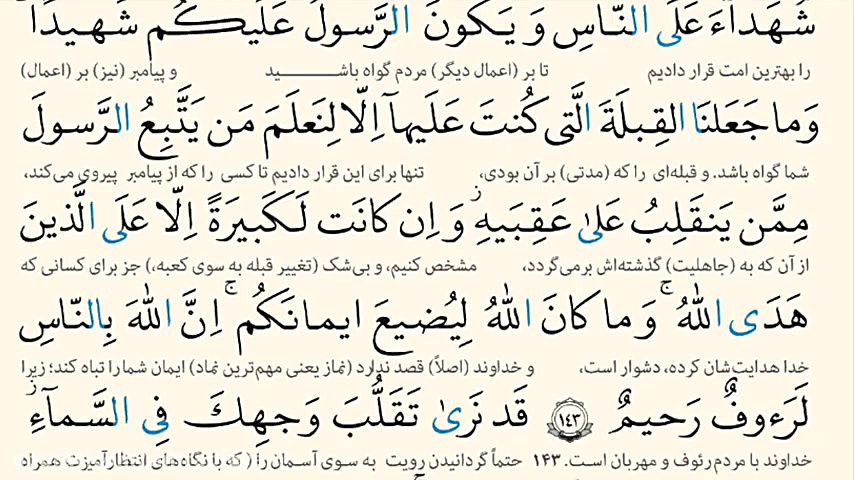 شُهَدآءَ عَلَی النّاسِ وَ یَکونَ الرَّسولُ عَلَیکُم شَهیدًا
را بهترین امت قرار دادیم تا بر (اعمال دیگر) مردم گواه باشید و پیامبر (نیز) بر (اعمال)
وَما جَعَلنَا القِبلَةَ الَّتی کُنتَ عَلَیهآ اِلّا لِنَعلَمَ مَن یَتَّبِعُ الرَّسولَ
شما گواه باشد. و قبله‌ای را که (مدتی) بر آن بودی، تنها برای این قرار دادیم تا کسی را که از پیامبر پیروی می‌کند،
مِمَّن یَنقَلِبُ عَلیٰ عَقِبَیهِ ۚ وَ اِن کانَت لَکَبیرَةً اِلّا عَلَی الَّذینَ
از آن که به (جاهلیت) گذشته‌اش برمی‌گردد، مشخص کنیم، و بی‌شک (تغییر قبله به سوی کعبه،) جز برای کسانی که
هَدَی اللهُ ۗ وَ ما کانَ اللهُ لِیُضیعَ ایمانَکُم ۚ اِنَّ اللهَ بِالنّاسِ
خدا هدایت‌شان کرده، دشوار است، و خداوند (اصلاً) قصد ندارد (نماز یعنی مهم‌ترین نماد) ایمان شما را تباه کند؛ زیرا
لَرَءوفٌ رَحیمٌ ﴿١٤٣﴾ قَد نَریٰ تَقَلُّبَ وَجهِکَ فِی السَّمآءِ ۖ
خداوند با مردم رئوف و مهربان است. ۱۴۳ حتماً گردانیدن رویت به سوی آسمان را ( که با نگاه‌های انتظارآمیزت همراه